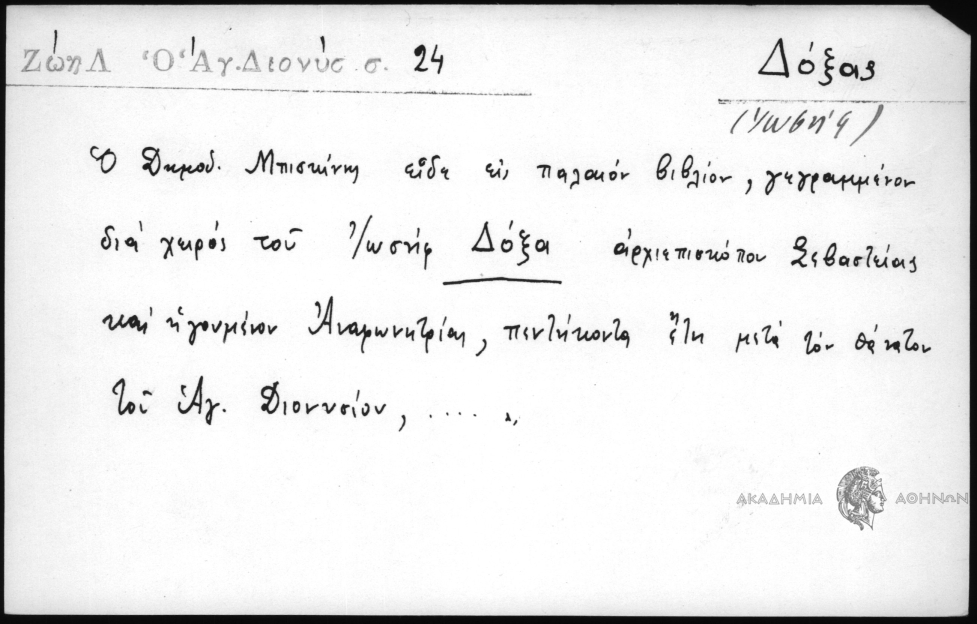 Ζώη Λ Ὁ Ἅγ. Διονύσ σ. 24
Δόξας
(Ἰωσήφ)
Ὁ Δημοδ. Μπισκίνης εἶδε εἰς παλαιόν βιβλίον, γεγραμμένον
διά χειρός τοῦ Ἰωσήφ Δόξα ἀρχιεπισκόπου Σεβαστείας
καί ἡγουμένου Ἀναφωνητρίας, πεντήκοντα ἔτη μετά τόν θάνατον
τοῦ Ἁγ. Διονυσίου, .....
ΑΚΑΔΗΜΙΑ ΑΘΗΝΩΝ